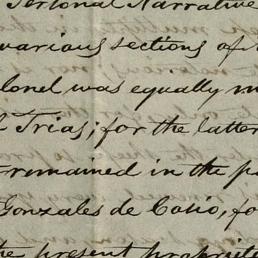 Personal Narrative
various sections of
lonel was equally m
l Trias; for the latter
remained in the p
Gonzales de Cosio, fo
the present propriet